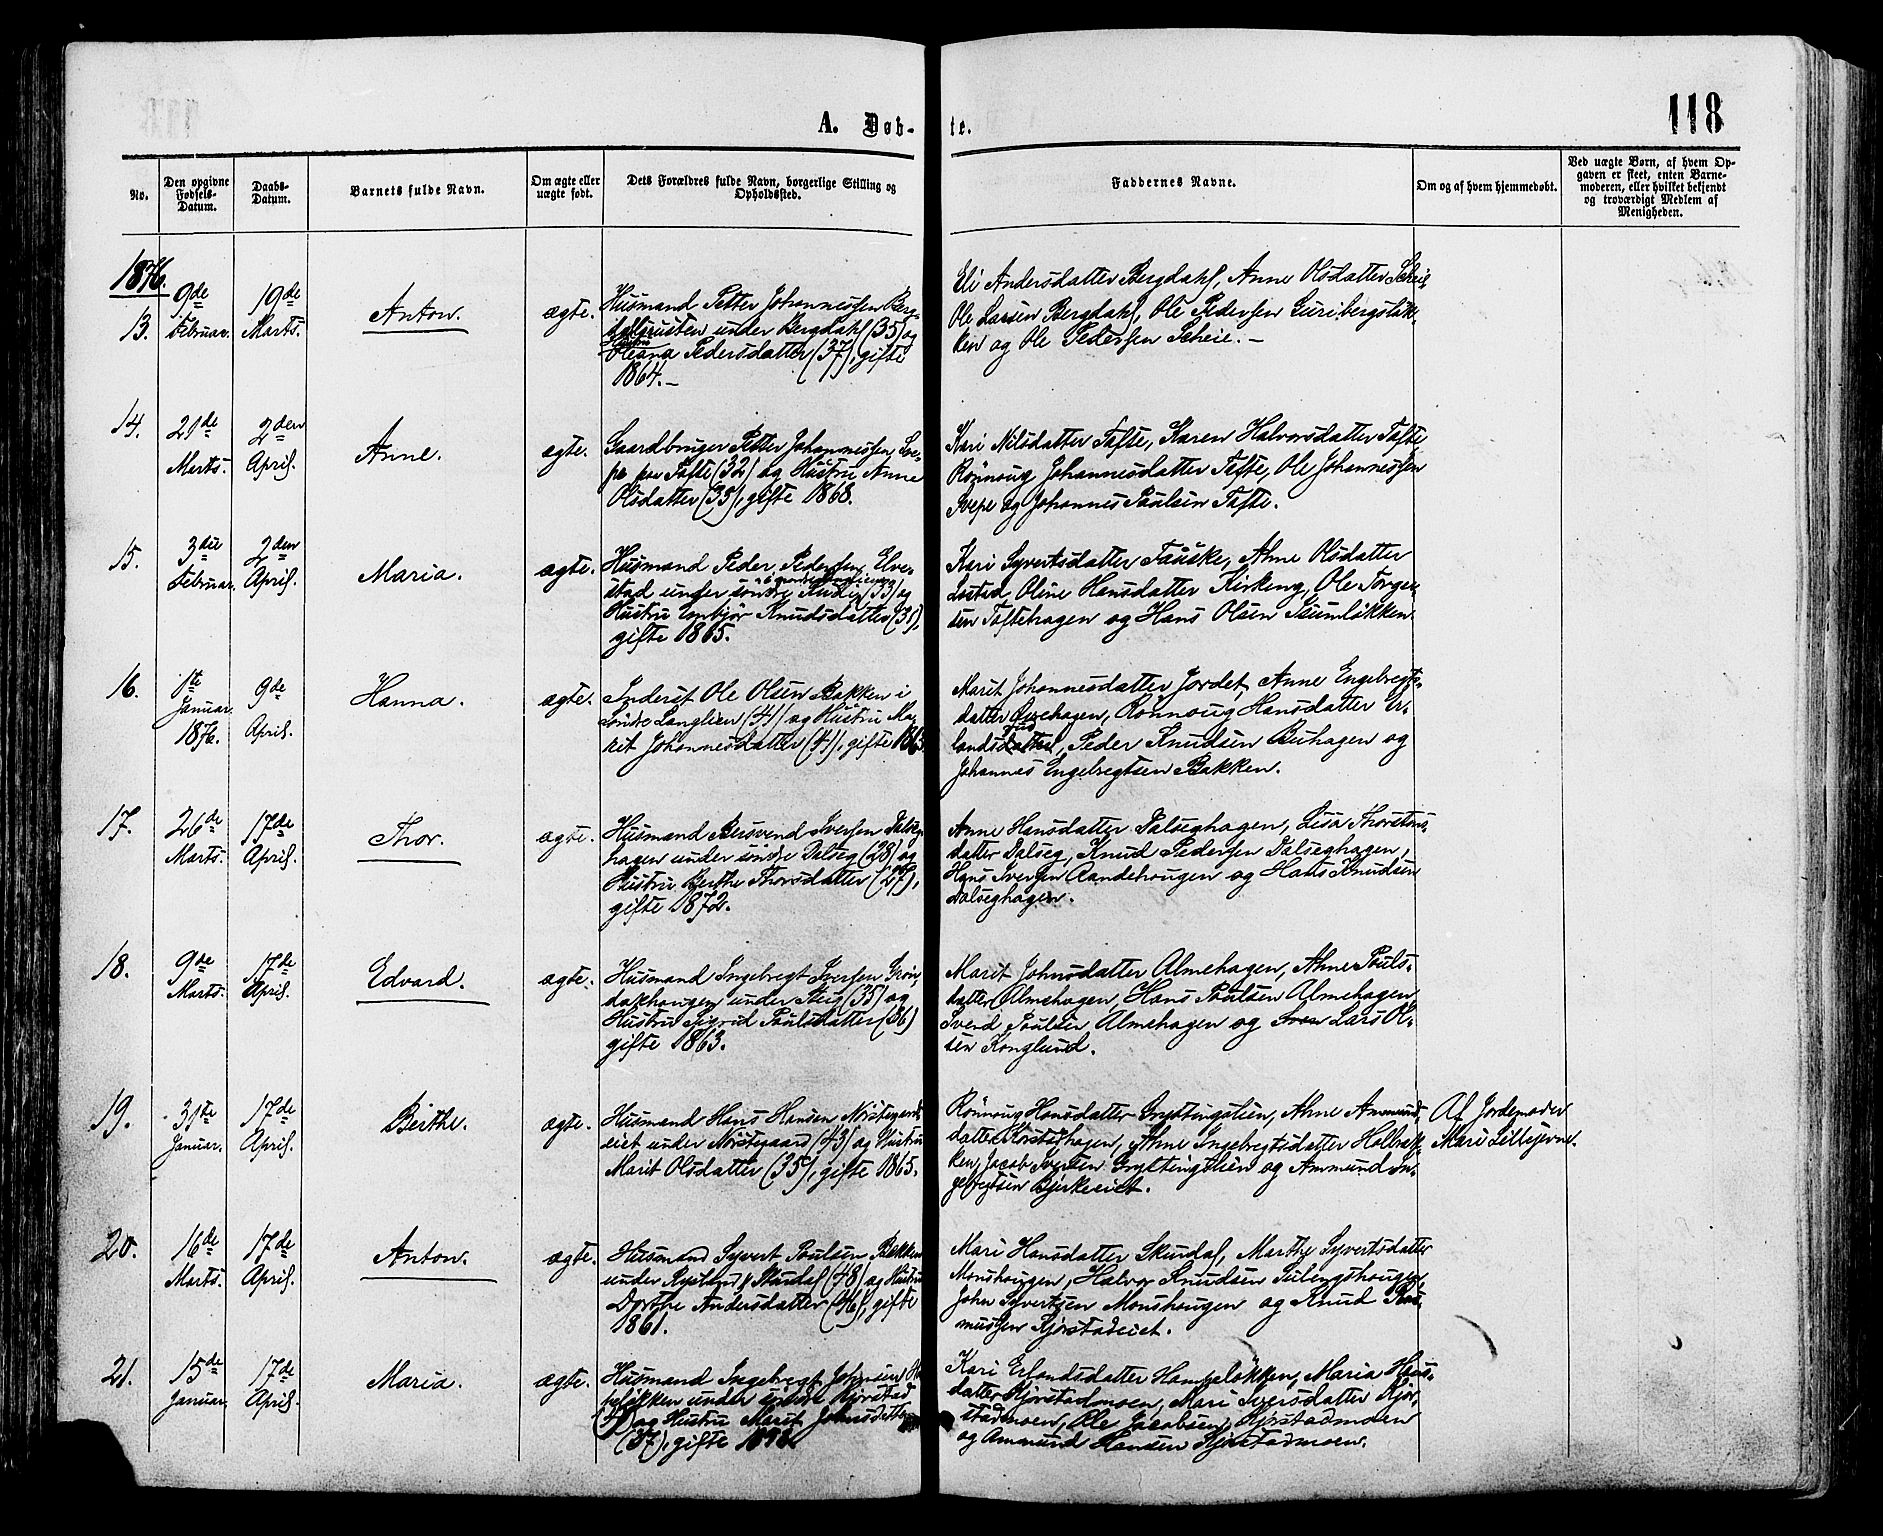 118
A. Døb-
te.
No.
Den opgivne Fødsels-Datum.
Daabs-Datum.
Barnets fulde Navn.
Om ægte eller uægte født.
Dets Forældres fulde Navn, borgerlige Stilling og Opholdssted.
Faddernes Navne.
Om og af hvem hjemmedøbt.
Ved uægte Børn, af hvem Opgaven er skeet, enten Barnemoderen, eller hvilket bekjendt og troværdigt Medlem af Menigheden.
1876.
13.
9de Februar.
19de Marts.
Anton.
ægte.
Husmand Petter Johannessen Berg-
under Bergdahl (35) og
Oleana Pedersdatter (37), gifte
1864.-
Eli Andersdatter Bergdahl, Anne Olsdatter Scheie
Ole Larsen Bergdahl, Ole Pedersen Guribergsløk-
ken og Ole Pedersen Scheie.-
14.
21de Marts.
2den April.
Anne.
ægte.
Gaardbruger Petter Johannessen Sve-
pe paa Tofte (32) og Hustru Anne
Olsdatter (35), gifte 1868.
Kari Nilsdatter Tofte, Karen Halvorsdatter Tofte,
Rønnoug Johannesdatter Tofte, Ole Johannessen
Svepe og Johannes Paulsen Tofte.
15.
3die Februar.
2den April.
Maria.
ægte.
Husmand Peder Pedersen Elve-
stad under søndre (33) og
Hustru Knudsdatter (31),
gifte 1865.
Kari Syvertsdatter Fauske, Anne Olsdatter
Oline Hansdatter Kirkeng, Ole Torger-
sen Toftehagen og Hans Olsen
16.
1ste Januar 1876.
9de April.
Hanna.
ægte.
Inderst Ole Olsen Bakken i
søndre Langlien (34) og Hustru Ma-
rit Johannesdatter (41), gifte 1863
Marit Johannesdatter Jordet, Anne Engebregts-
datter Buehagen, Rønnoug Hansdatter Er-
landsrud, Peder Knudsen Buhagen og
Johannes Engebregtsen Bakken.
17.
26de Marts.
17de April.
Thor.
ægte.
Husmand Bersvend Iversen Dalseg-
hagen under søndre Dalseg (28) og
Hustru Berthe Thorsdatter (27),
gifte 1872.
Anne Hansdatter Dalseghagen, Lisa Thorstens-
datter Dalseg, Knud Pedersen Dalseghagen,
Hans Iversen Randehougen og Hans Knudsen
Dalseghagen.
18.
9de Marts.
17de April.
Edvard.
ægte.
Husmand Ingebregt Iversen Grøn-
dalshougen under Steig (35) og
Hustru Sigrid Poulsdatter (36)
gifte 1863.
Marit Johnsdatter Almehagen, Anne Pouls-
datter Almehagen, Hans Poulsen Almehagen,
Svend Poulsen Almehagen og Lars Ol-
sen Konglund.
19.
31te Januar.
17de April.
Berthe.
ægte.
Husmand Hans Hansen Nørstegaards-
eiet under Nørstegaard (43) og Hustru
Marit Olsdatter (35), gifte 1865.
Rønnoug Hansdatter Gryttingslien, Anne Ammund-
datter Kjorstadhagen, Anne Ingebregtsdatter Holbak-
ken, Jacob Iversen Gryttingslien og Ammund In-
gebregtsen Bjerkeeiet.
Af Jordemoder
Mari Lillejevne.
20.
16de Marts.
17de April.
Anton.
ægte.
Husmand Syvert Poulsen Bakken
under Skurdal (48) og Hustru
Dorthe Andersdatter (46), gifte
1861.
Mari Hansdatter Skurdal, Marthe Syvertsdatter
Monshougen, Halvor Knudsen Sulengshougen,
John Syvertsen Monshougen og Knud Ras-
mussen Kjørstadeiet.
21.
15de Januar.
17de April.
Maria.
ægte.
Husmand Ingebregt Johnsen Ha-
peløkken under søndre Kjørstad
og Hustru Marit Johnsdatter
(37), gifte
Kari Erlandsdatter Hampeløkken, Maria Hans-
datter Kjørstadmoen, Mari Iversdatter Kjør-
stadmoen, Ole Jacobsen Kjørstadmoen
og Ammund Hansen Kjørstadmoen.